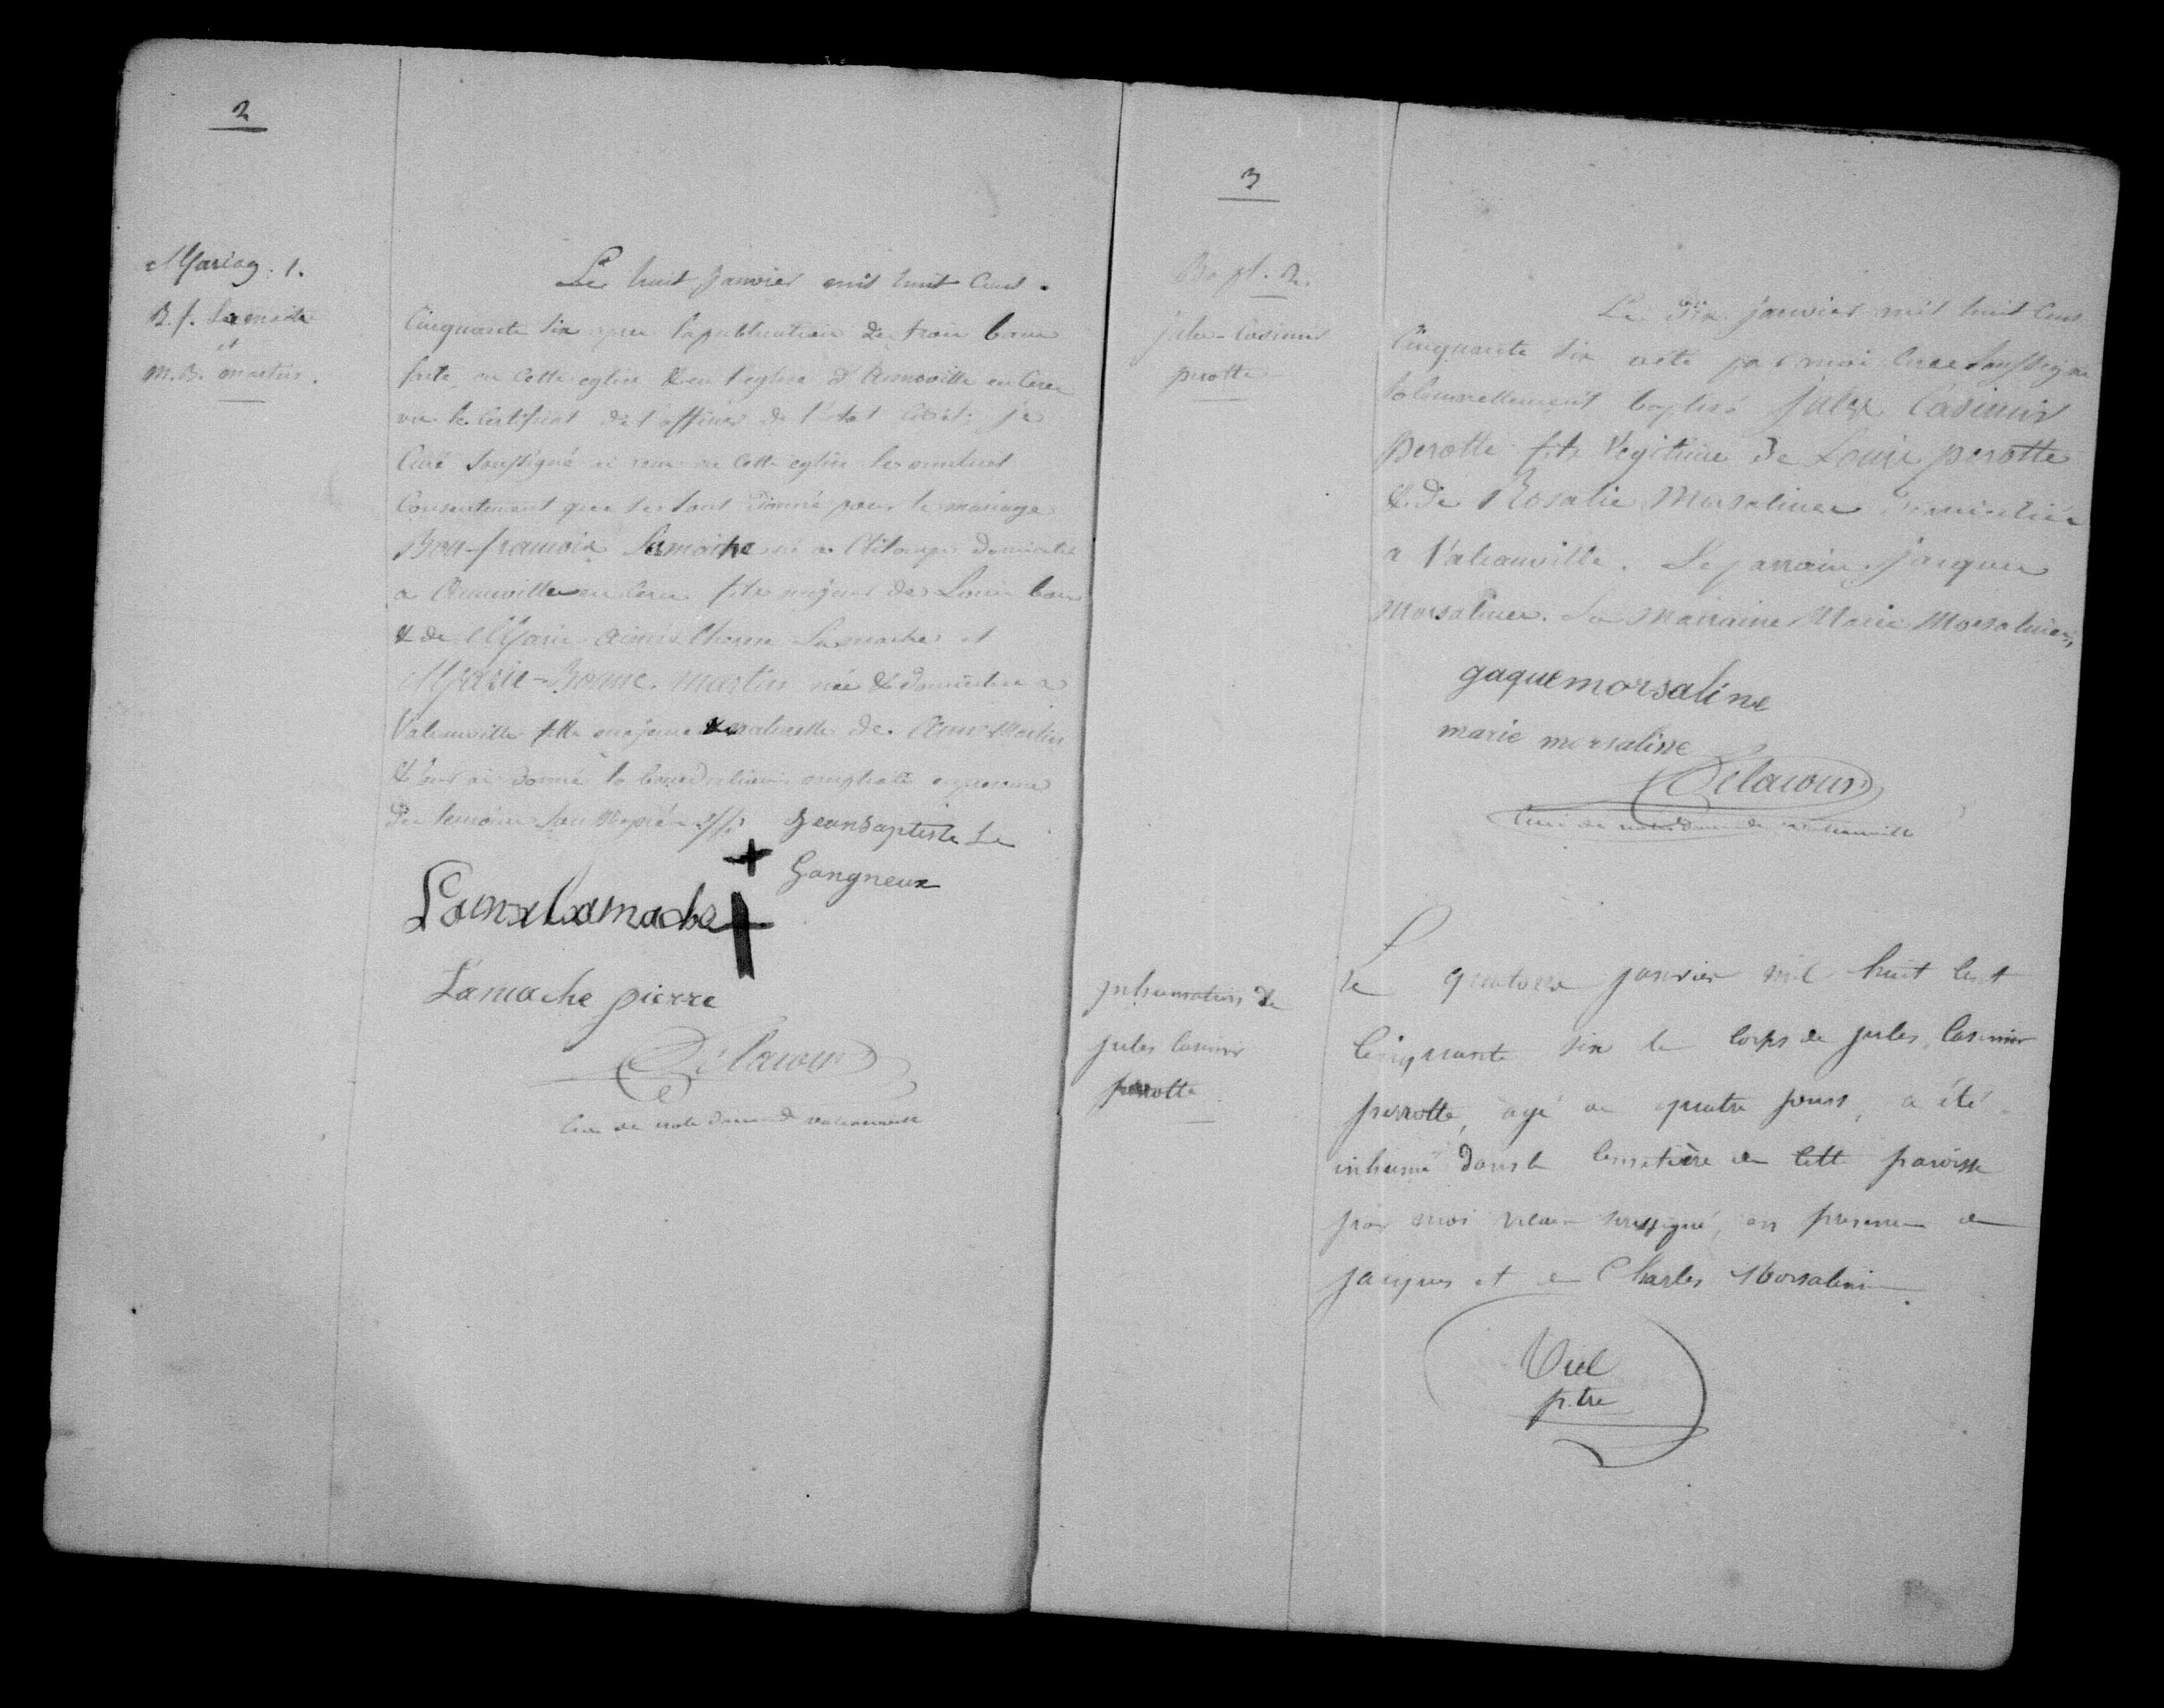 2
Mariag. 1.
B. f. Lamache
et
M. B. martin.
Le huit janvier mil huit cent
cinquante six apres la publication de trois bans
faite en cette eglise & en l'eglise d'Anneville en Cere
vu le certificat de l'officier de l'etat civil je
Curé soussigné ai reçu en cette eglise le mutuel
consentement que se sont donné pour le mariage
Bon-francois Lamache né a domicilié
a Anneville en Cere fils majeur de Louis bon
& de Marie aimée Lamache et
Marie-Bonne martin née & domiciliée a
Valcanville fille majeure & naturelle de martin
& leur ai donné la benediction nuptiale en presence
des temoins soussignés jean baptiste Le
Gangneux
+
Lamache +
Lamache pierre
Delacour
Curé de notre dame de valcanville
3
Bapt. 2.
jules-Casimir
perotte
Le dix janvier mil huit cent
cinquante six a été par moi Curé soussigné
solennellement baptisé jules Casimir
perotte fils legitime de Louis perotte
& de Rosalie Morsaline domiciliés
a Valcanville. Le parrain jacques
Morsaline. La marraine Marie Morsaline.
gaque morsaline
marie morsaline
Delacour
Curé de notre dame de valcanville
inhumation de
jules Casimir
perrotte
Le quatorze janvier mil huit cent
cinquante six le corps de jules Casimir
perrotte, agé de quatre jours, a été
inhumé dans le cimetière de cette paroisse
par moi vicaire soussigné, en presence de
jacques et de Charles Morsaline.
Viel
p.tre